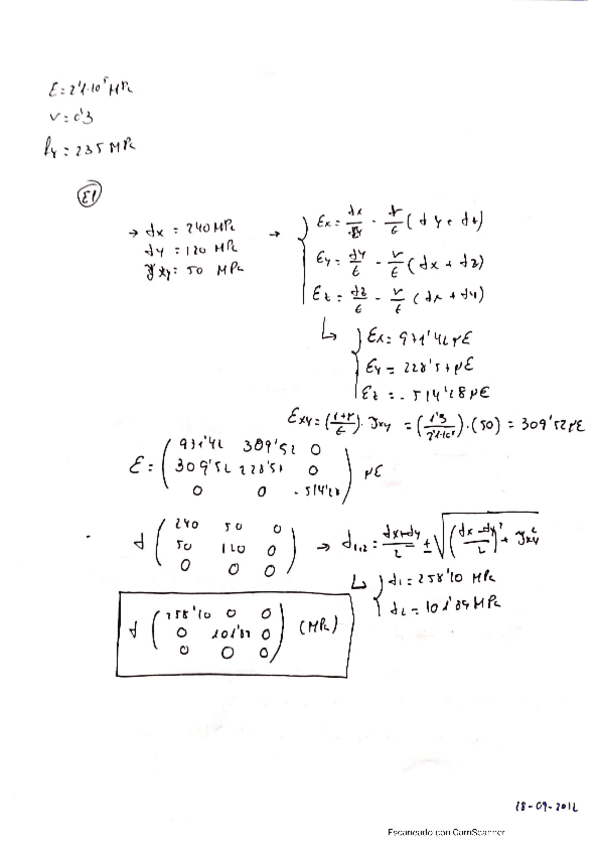 E = 2'1·10⁵ MPa
ν = 0'3
fy = 235 MPa
E1
→ σx = 240 MPa
σy = 120 MPa
τxy = 50 MPa
→ { Ex = σx/E - ν/E (σy + σz)
Ey = σy/E - ν/E (σx + σz)
Ez = σz/E - ν/E (σx + σy)
↳ { Ex = 971'42 με
Ey = 228'57 με
Ez = -514'28 με
Exy = (1+ν/E) · τxy = (1'3/2'1·10⁵) · (50) = 309'52 με
E = ( 971'42 309'52 0
309'52 228'57 0
0 0 -514'28 ) με
σ ( 240 50 0
50 120 0
0 0 0 ) → σ1,2 = σx+σy/2 ± √((σx-σy/2)² + τxy²)
↳ { σ1 = 258'10 MPa
σ2 = 101'89 MPa
σ ( 258'10 0 0
0 101'89 0
0 0 0 ) (MPa)
28-09-2012
Escaneado con CamScanner